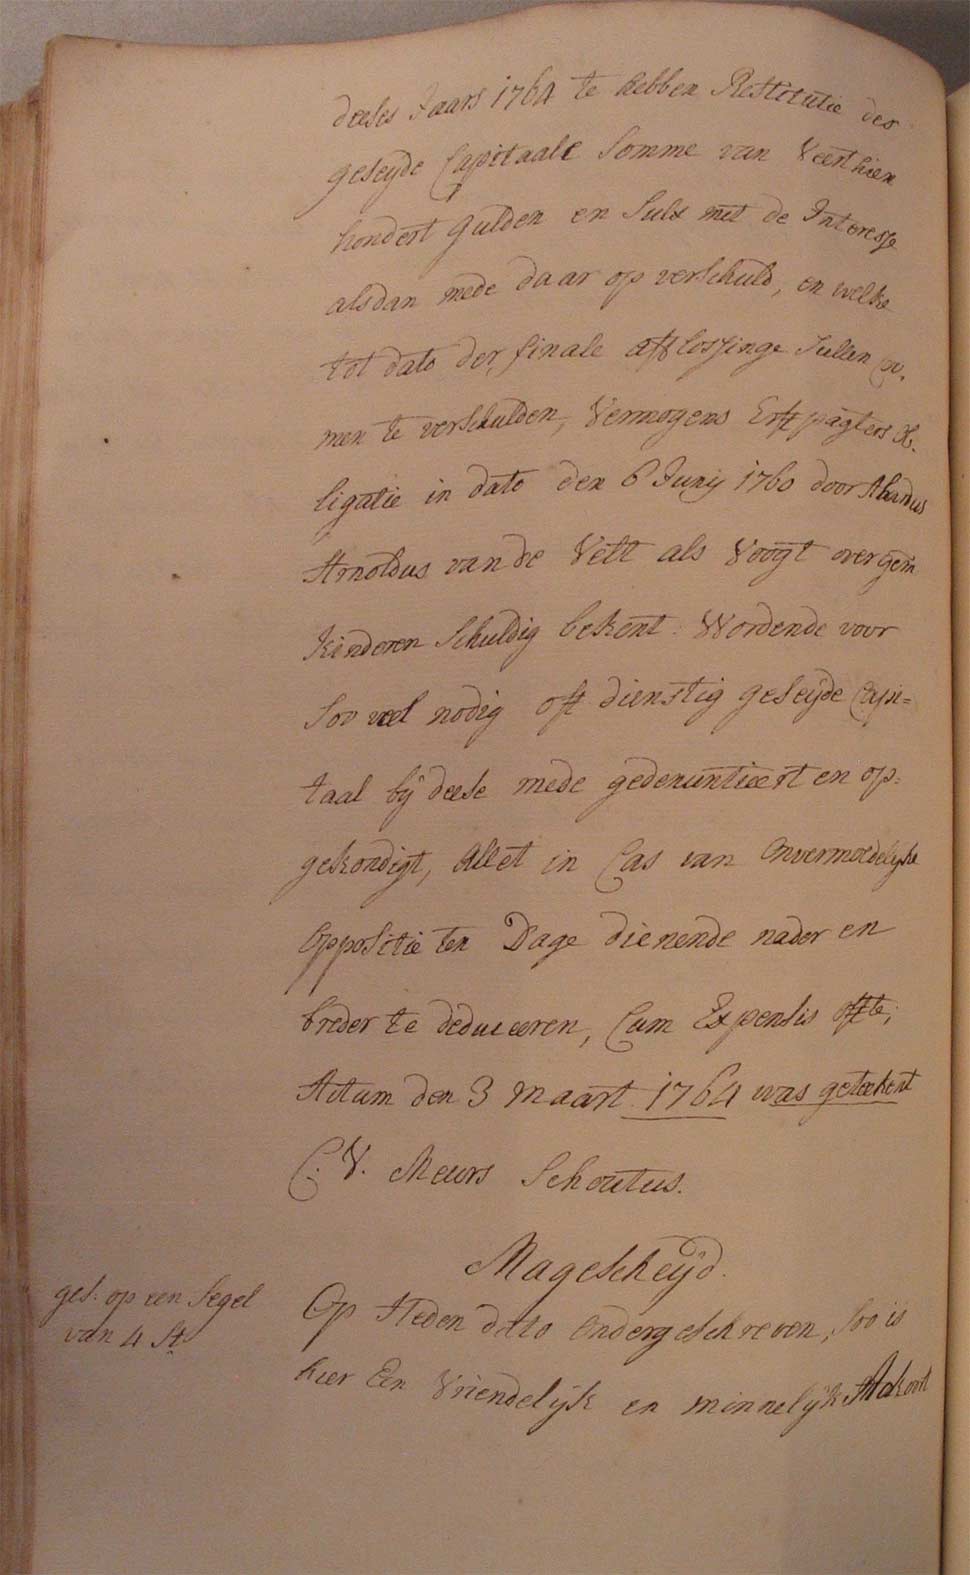 deeses Jaars 1764 te hebben Restitutie der
geseijde Capitaale Somme van Veerthien
hondert Gulden en Sulx met de Interesse
alsdan mede daar op verschuld, en welke
tot dato der finale afflossinge Sullen Co,
men te verschulden, Vermogens Erffpagters Ob,
ligatie in dato den 6 Junij 1760 door
Arnoldus van de Velt als Voogt over gem
Kinderen Schuldig bekent: Wordende voor
Soo veel nodig oft dienstig geseijde Capi=
taal bij deese mede gedenuntieert en op=
gekondigt, Allet in Cas van Onvermoedelijke
Oppositie ten Dage dienende nader en
breder te deduceeren, Cum Expensis offte;
Actum den 3 Maart 1764 was geteekent
C. V. Meurs Schoutus.
Magescheijd.
ges: op een Segel
van 4 St
Op Heden dato ondergeschreven, Soo is
hier Een Vriendelijk en minnelijk Ackoort